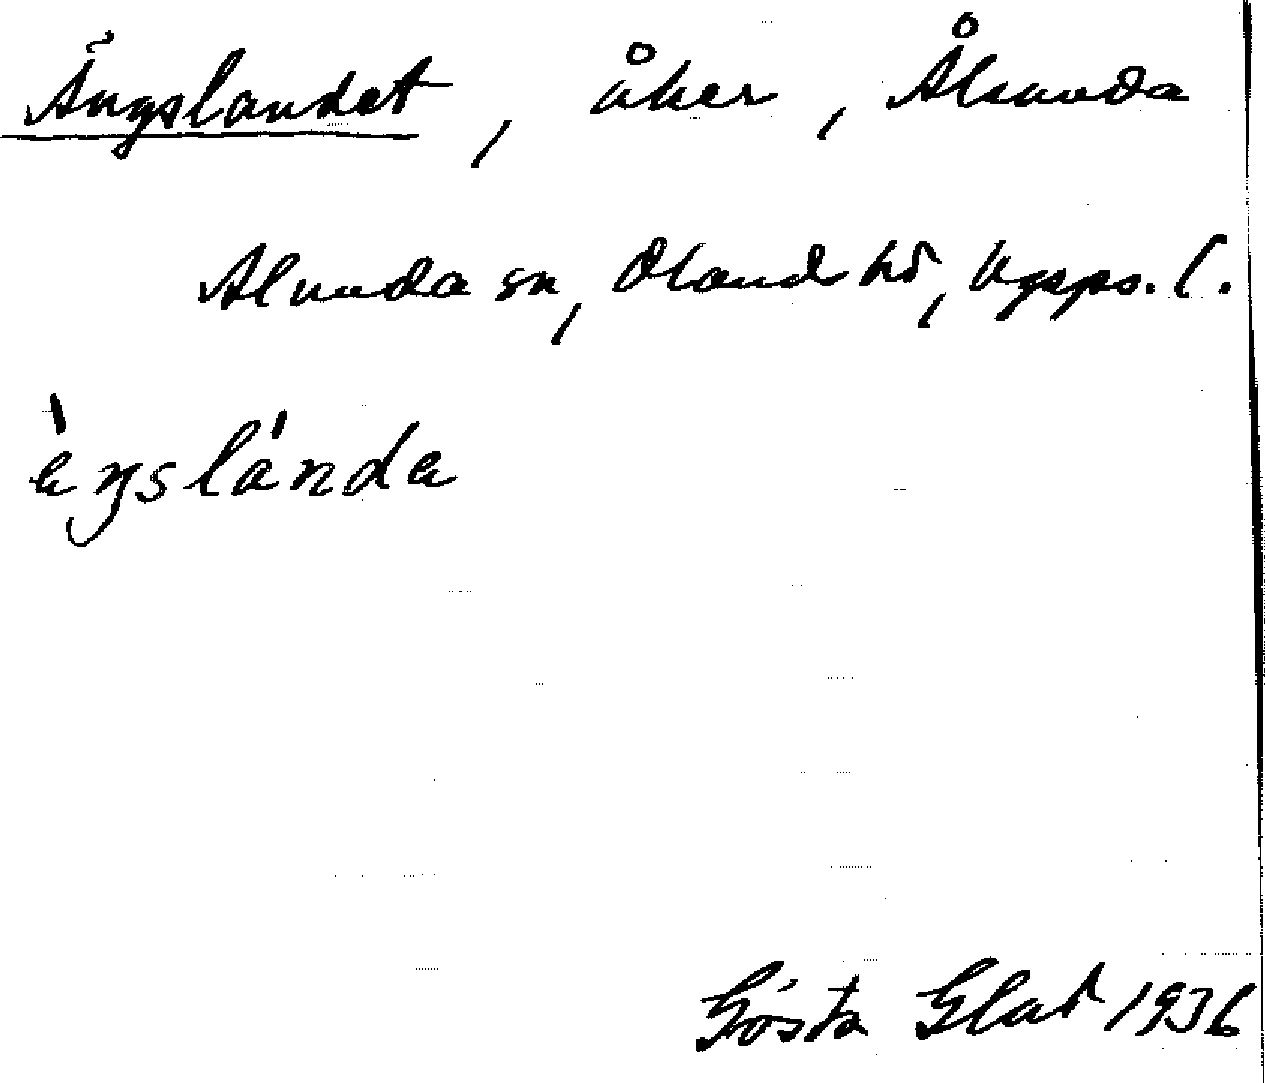 Ängslandet, åker, Ålsunda
Alunda sn, Oland hd, Upps. l.
Gösta Glad 1936